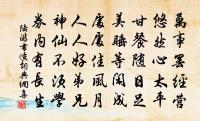 萬事罷經營
悠然心太平
甘餐隨日足
美睡等閒成
處處佳風月
人人好弟兄
神仙不須學
券內有長生
陸游書懷詞典網集